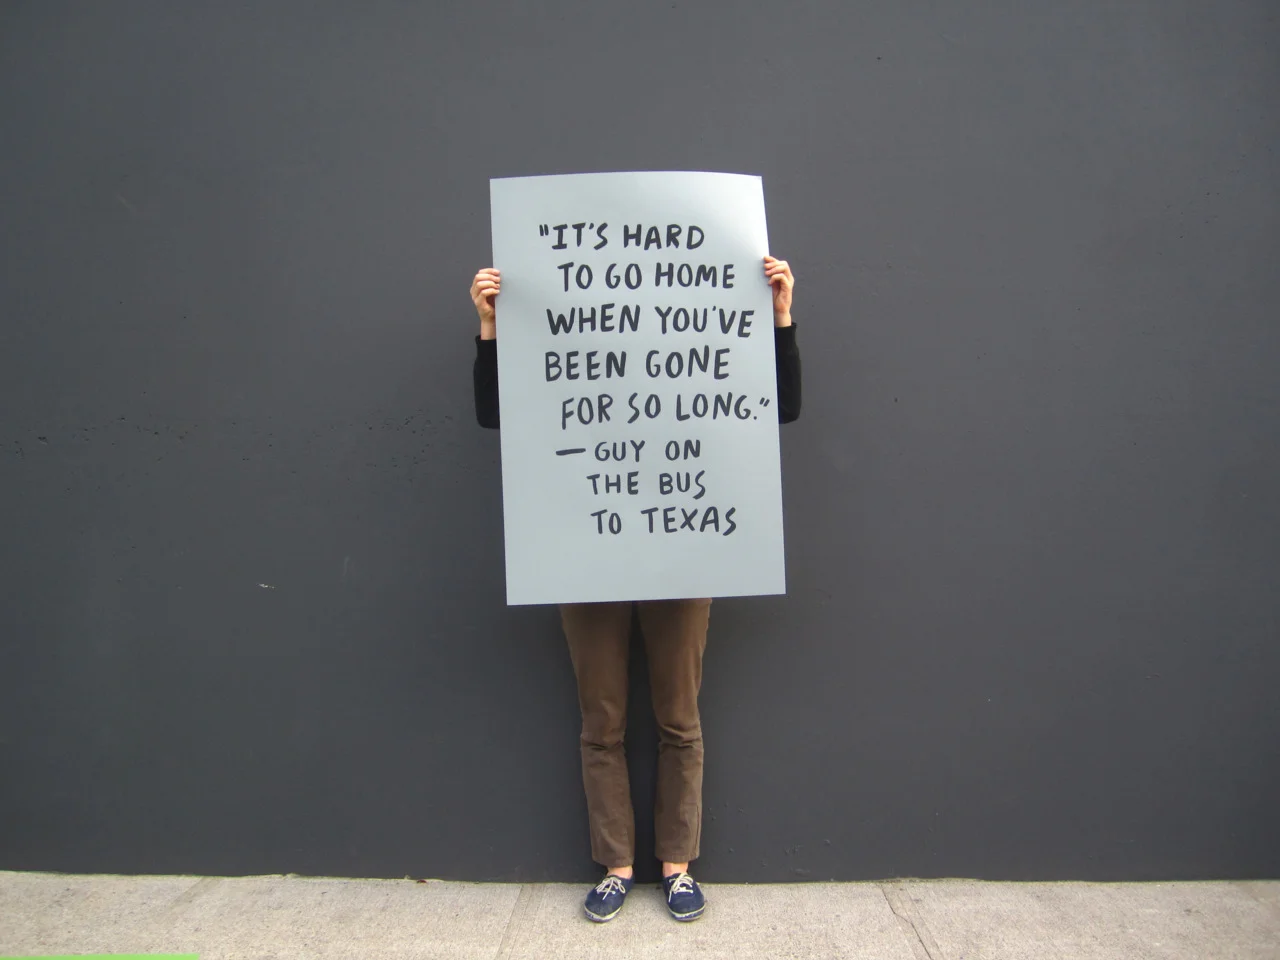 "IT'S HARD
TO GO HOME
WHEN YOU'VE
BEEN GONE
FOR SO LONG."
— GUY ON
THE BUS
TO TEXAS